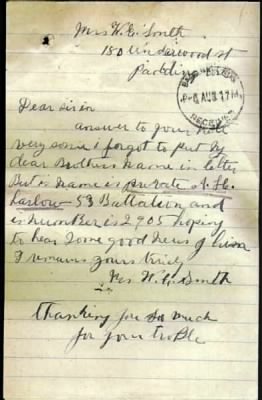 Mrs W. E. Smith
150 Underwood st
Paddington
6 AUG 17
RECEIVED
Dear sir in
answer to your note
very sorrie i forgot to put my
dear Brothers name in letter
But is name is private
Harlow 53 Battalion and
is number is 2905 hoping
to hear some good news of him
I remains yours truly
Mrs W. E. Smith
thanking you so much
for your truble